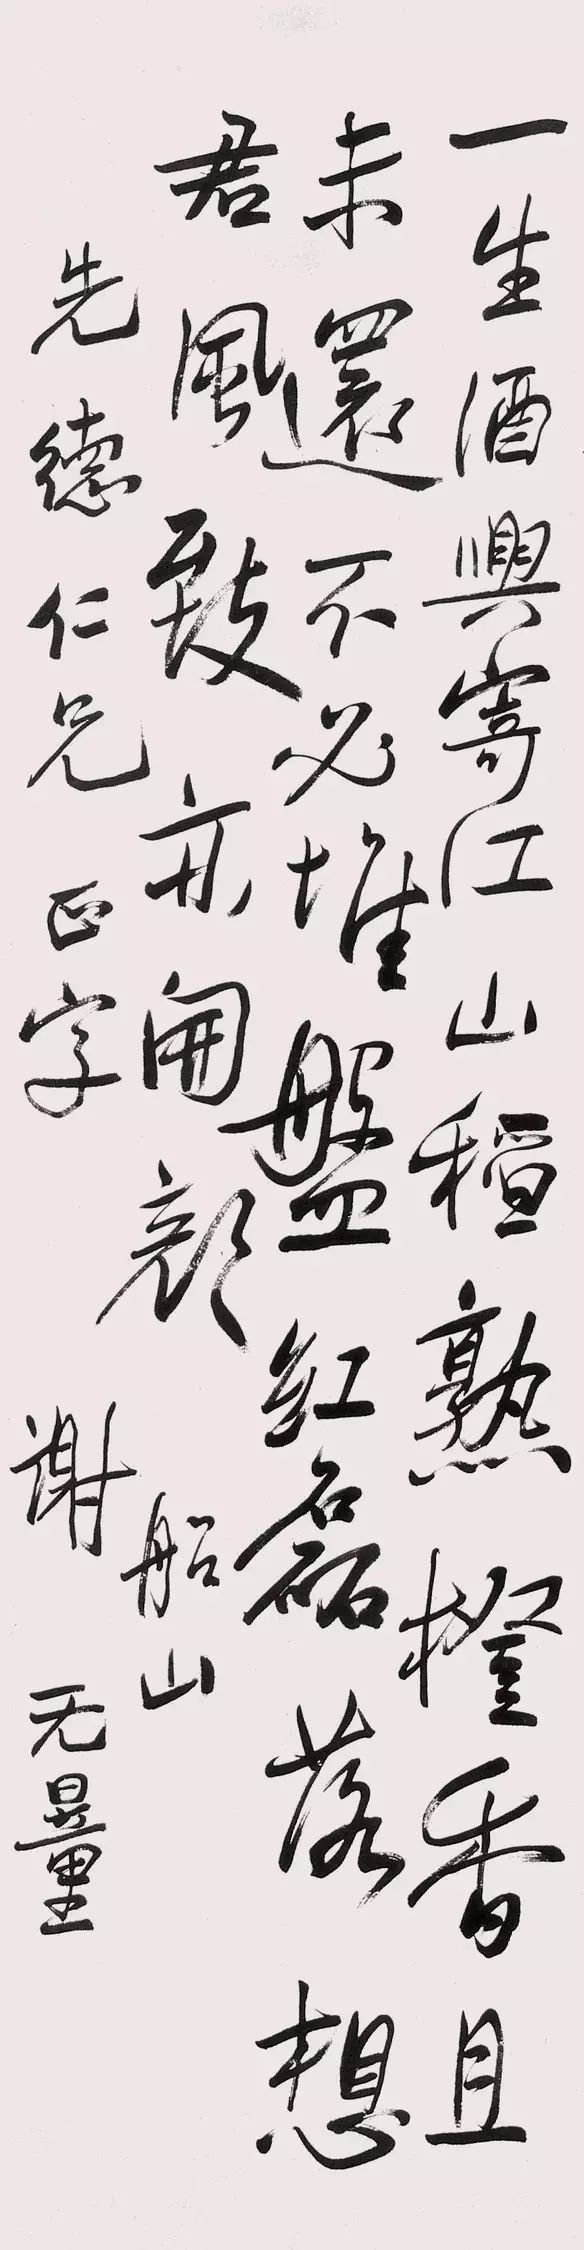 一生酒興寄江山稻熟橙香且
未還不必堆盤紅磊落想
君風致亦開顏船山
先德仁兄正字謝无量